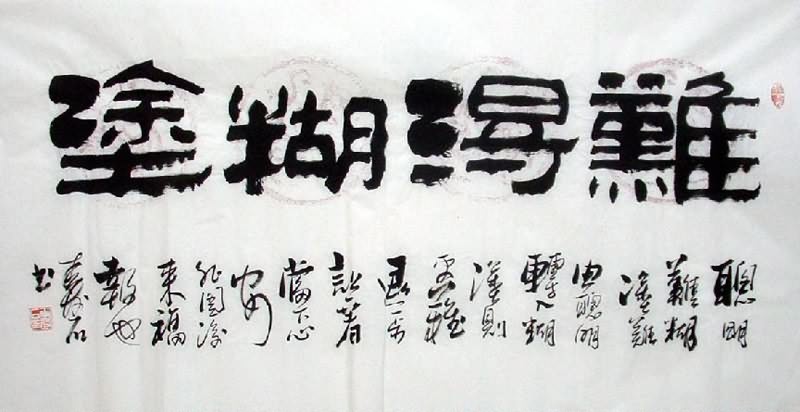 難得糊塗
聰明
難糊
塗難
由聰明
轉入糊
塗則
更難
著
當下心
安
非圖後
來福
報也
石
書